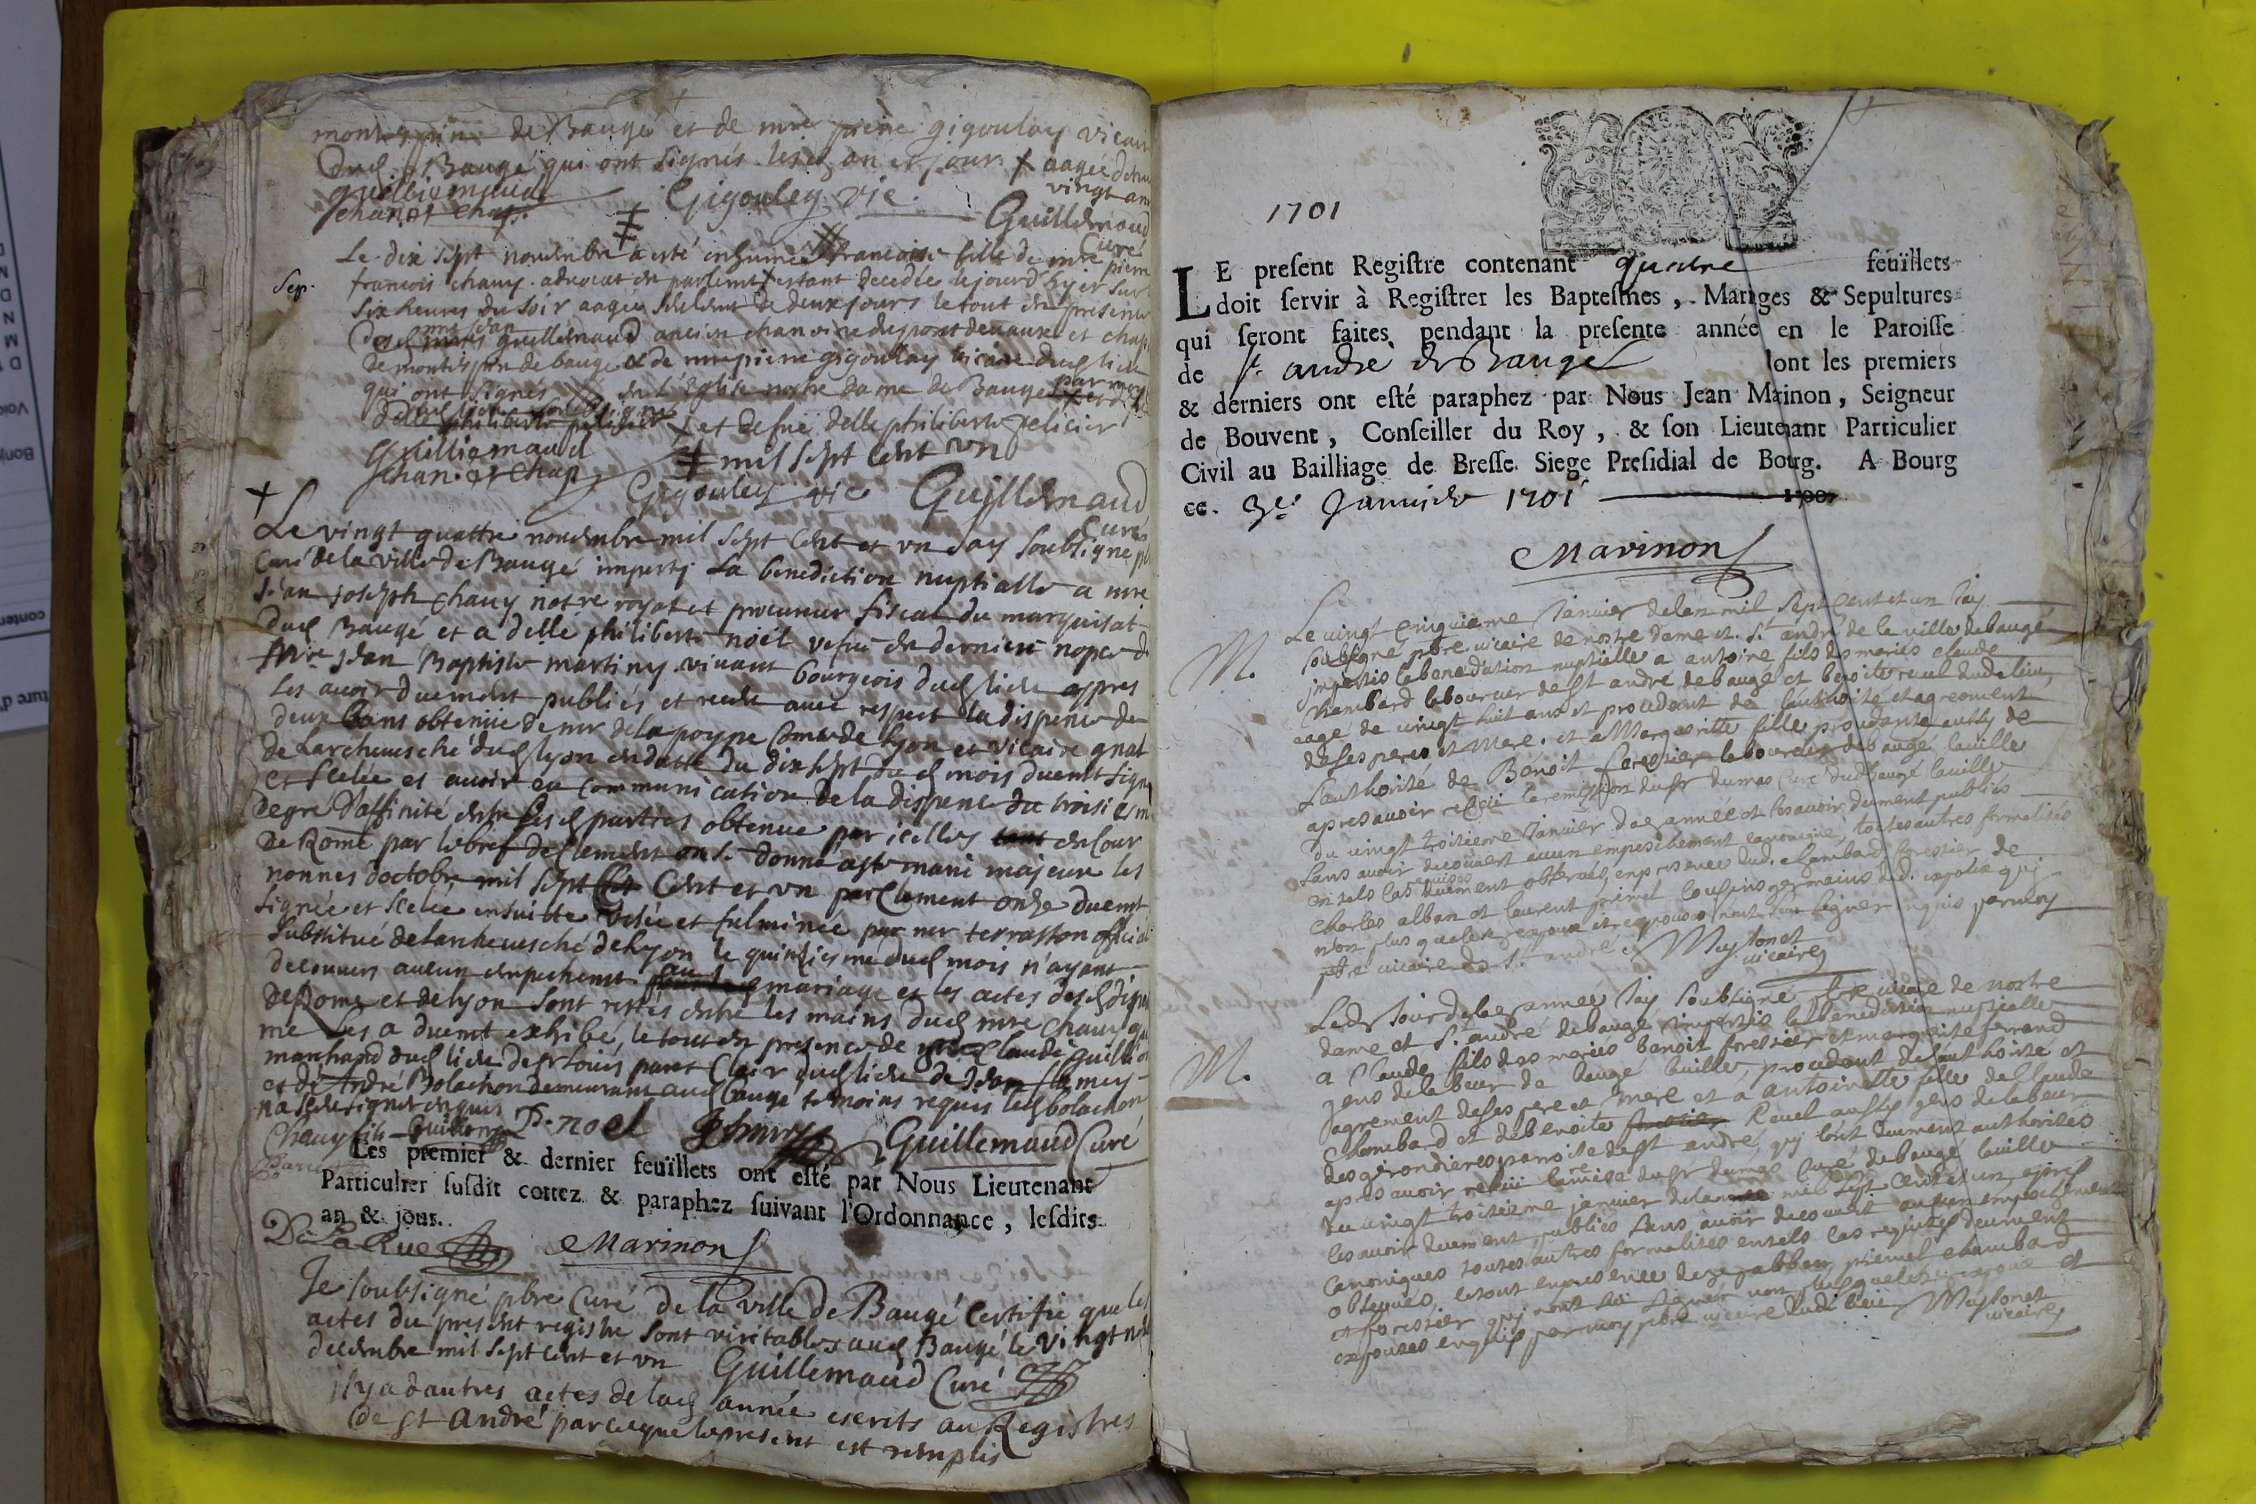 de Baugé et de mre pierre gigouley vicaire
dud Baugé qui ont signés lesd an et jour aagée de
vingt ans
guilliemaud
chan. et chap.
Gigouley vic.
Guillemaud
Curé
Sep.
Le dix sept novembre a esté inhumée francoise fille de mre
francois chauy advocat en parlement estant decedée le jourd'hyer sur
six heures du soir aagée seulement de deux jours le tout en presence
guillemaud ancien chanoine du pont de vaux et chap
de montespin de baugé et de mre pierre gigouley vicaire dud lieu
qui ont signés en l'Eglise nostre dame de Baugé par moy
et de delle philiberte pelicier
guilliemaud
chan. et chap
mil sept cent un
Gigouley vic
Guillemaud
Curé
Le vingt quattre novembre mil sept cent et un Jay soubsigné pbre
Curé de la ville de Baugé imparty la benediction nuptialle a mre
Jean joseph chauy notre royal et procureur fiscal du marquisat
dud Baugé et a delle philiberte noël vefue en dernieres nopces de
mre Jean Baptiste martiny vivant bourgeois dud lieu appres
les avoir duement publiés et receu avec respect la dispense de
deux bans obtenüe de mr de la poype Comte de lyon et vicaire gnal
de Larchevesché dud lyon en datte du dix sept dud mois duemt signé
et sellée et avoir eu communication de la dispense du troisiesme
degré d'affinité entre lesd parties obtenue par icelles en Cour
de Rome par le bref de Clement onze donné a ste marie majeure les
nonnes doctobre mil sept cent et un par Clement onze duemt
signée et scelée ensuitte visée et fulminée par mr terrasson official
substitué de larchevesché de lyon le quinziesme dud mois n'ayant
decouvers aucun empechemt au mariage et les actes desd dispenses
de Rome et de lyon sont restés entre les mains dud mre chauy qui
me les a duemt exhibé, le tout en presence de Claude guillion
marchand dud lieu de sr louis paret Clair dud lieu de Jean
et de André Bolachon demeurant aud Baugé temoins requis led bolachon
na sceu signer enquis
Chauy Guillion P. noel Jchauy Guillemaud Curé
Les premier & dernier feüillets ont esté par Nous Lieutenant
Particulier susdit cottez & paraphez suivant l'Ordonnance, lesdits
an & jour.
De La Rue Marinon
Je soubsigné pbre Curé de la ville de Baugé Certifie que les
actes du present registre sont veritables aud Baugé le vingt
decembre mil sept cent et un Guillemaud Curé
Il y a d'autres actes de lad année escrits au Registres
de st André parceque le present est remplis
1701
LE present Registre contenant quatre feüillets
doit servir à Registrer les Baptesmes, Mariages & Sepultures
qui seront faites pendant la presente année en le Paroisse
de st. andré de Baugé dont les premiers
& derniers ont esté paraphez par Nous Jean Marinon, Seigneur
de Bouvent, Conseiller du Roy, & son Lieutenant Particulier
Civil au Bailliage de Bresse Siege Presidial de Bourg. A Bourg
ce. 3e. Janvier 1701
Marinon
M.
Le vingt cinquieme Janvier de lan mil sept cent et un Jay
soubsigné pbre vicaire de nostre dame et St andré de la ville de baugé
impartis la benediction nuptielle a antoine fils des mariés claude
chambard laboureur de st andré de baugé et benoite revel dud lieu,
aagé de vingt huit ans et procedant de l'authorité et agreement
de ses peres et mere. et a Margueritte fille procedante aussy de
l'authorité de Benoit forestier laboureur de baugé laville
apres avoir receü la remission du sr dumas Curé dud baugé laville
du vingt troisieme Janvier de lad année et les avoir duement publiés
sans avoir decouvert aucun empeschement canonique, toutes autres formalités
en tels cas requises duement observées, en presence dud. chambard forestier de
Charles alban et laurent primel cousins germains dud. espoux qui
non plus que les espoux et espouses n'ont sceu signer enquis par moy
pbre vicaire de St. andré Muysonet
vicaire
M.
Led. Jour de lad année Jay soubsigné pbre vicaire de nostre
dame et St. andré de baugé impartis la benediction nuptielle
a Claude fils des mariés benoit forestier et margueritte ferrand
gens de labeur de baugé laville, procedant de l'authorité et
agreement de ses pere et mere et a antoinette fille de Claude
Chambard et de benoite Revel aussy gens de labeur
des gerondieres paroisse de st andré, qui l'ont duement authorisées
apres avoir receüe la remise du sr dumas Curé de baugé laville
du vingt troisieme janvier de lannée mil sept cent et un, apres
les avoir duement publiés sans avoir decouvert aucun empeschement
canoniques toutes autres formalités en tels cas requises deument
observées, le tout en presence de abban, primel chambard
et forestier qui n'ont sceu signer non plus que lesd. espoux et
espouses enquis par moy pbre vicaire dud. lieu Muysonet
vicaire